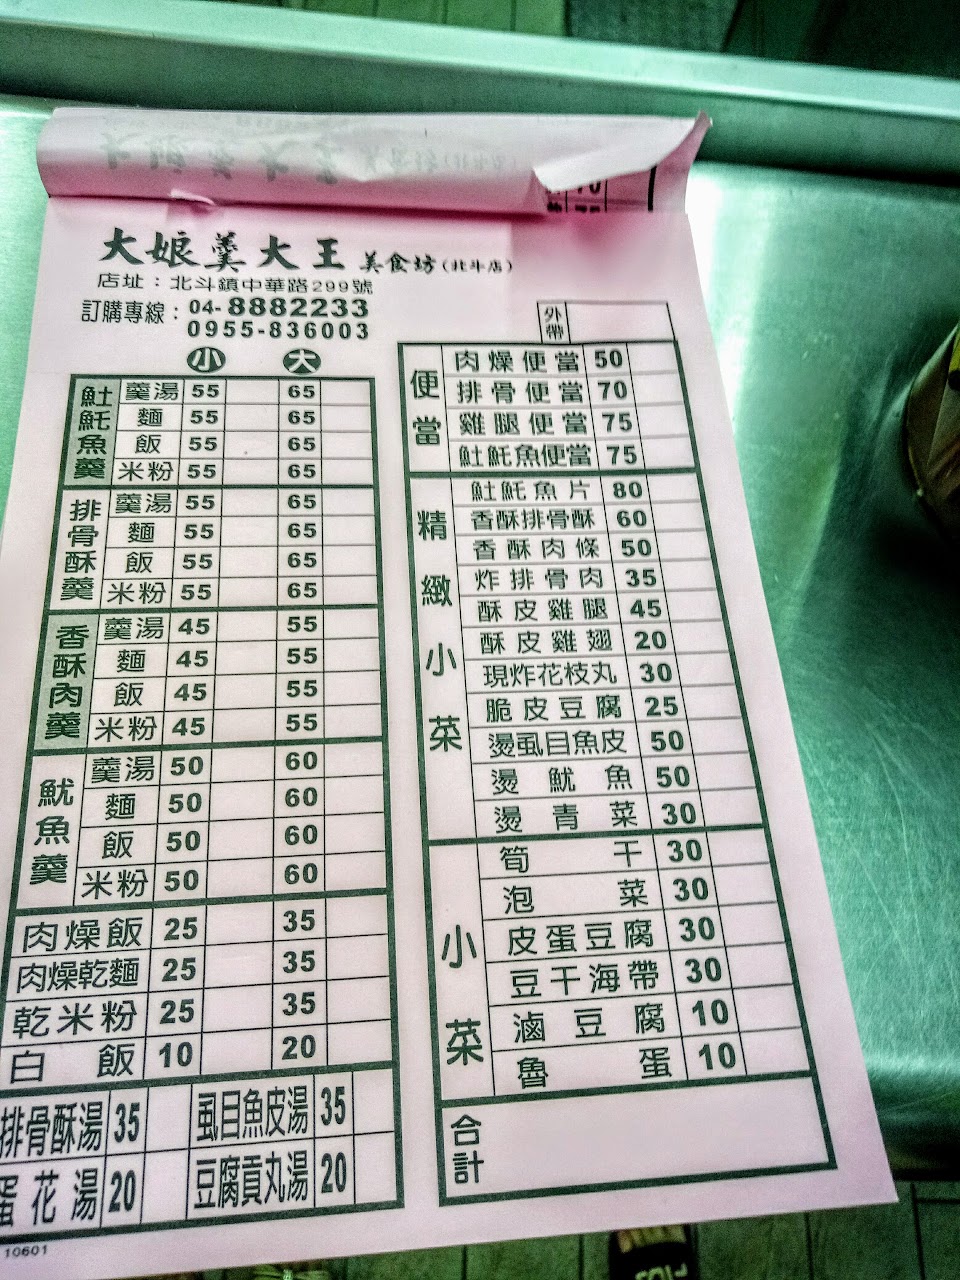 大娘羹大王 美食坊(北斗店)
店址：北斗鎮中華路299號
訂購專線：04-8882233
0955-836003
小 大
魠魚羹
羹湯 55 65
麵 55 65
飯 55 65
米粉 55 65
排骨酥羹
羹湯 55 65
麵 55 65
飯 55 65
米粉 55 65
香酥肉羹
羹湯 45 55
麵 45 55
飯 45 55
米粉 45 55
魷魚羹
羹湯 50 60
麵 50 60
飯 50 60
米粉 50 60
肉燥飯 25 35
肉燥乾麵 25 35
乾米粉 25 35
白飯 10 20
排骨酥湯 35 虱目魚皮湯 35
蛋花湯 20 豆腐貢丸湯 20
10601
外帶
便當
肉燥便當 50
排骨便當 70
雞腿便當 75
魠魚便當 75
精緻小菜
魠魚片 80
香酥排骨酥 60
香酥肉條 50
炸排骨肉 35
酥皮雞腿 45
酥皮雞翅 20
現炸花枝丸 30
脆皮豆腐 25
燙虱目魚皮 50
燙魷魚 50
燙青菜 30
小菜
筍干 30
泡菜 30
皮蛋豆腐 30
豆干海帶 30
滷豆腐 10
魯蛋 10
合計